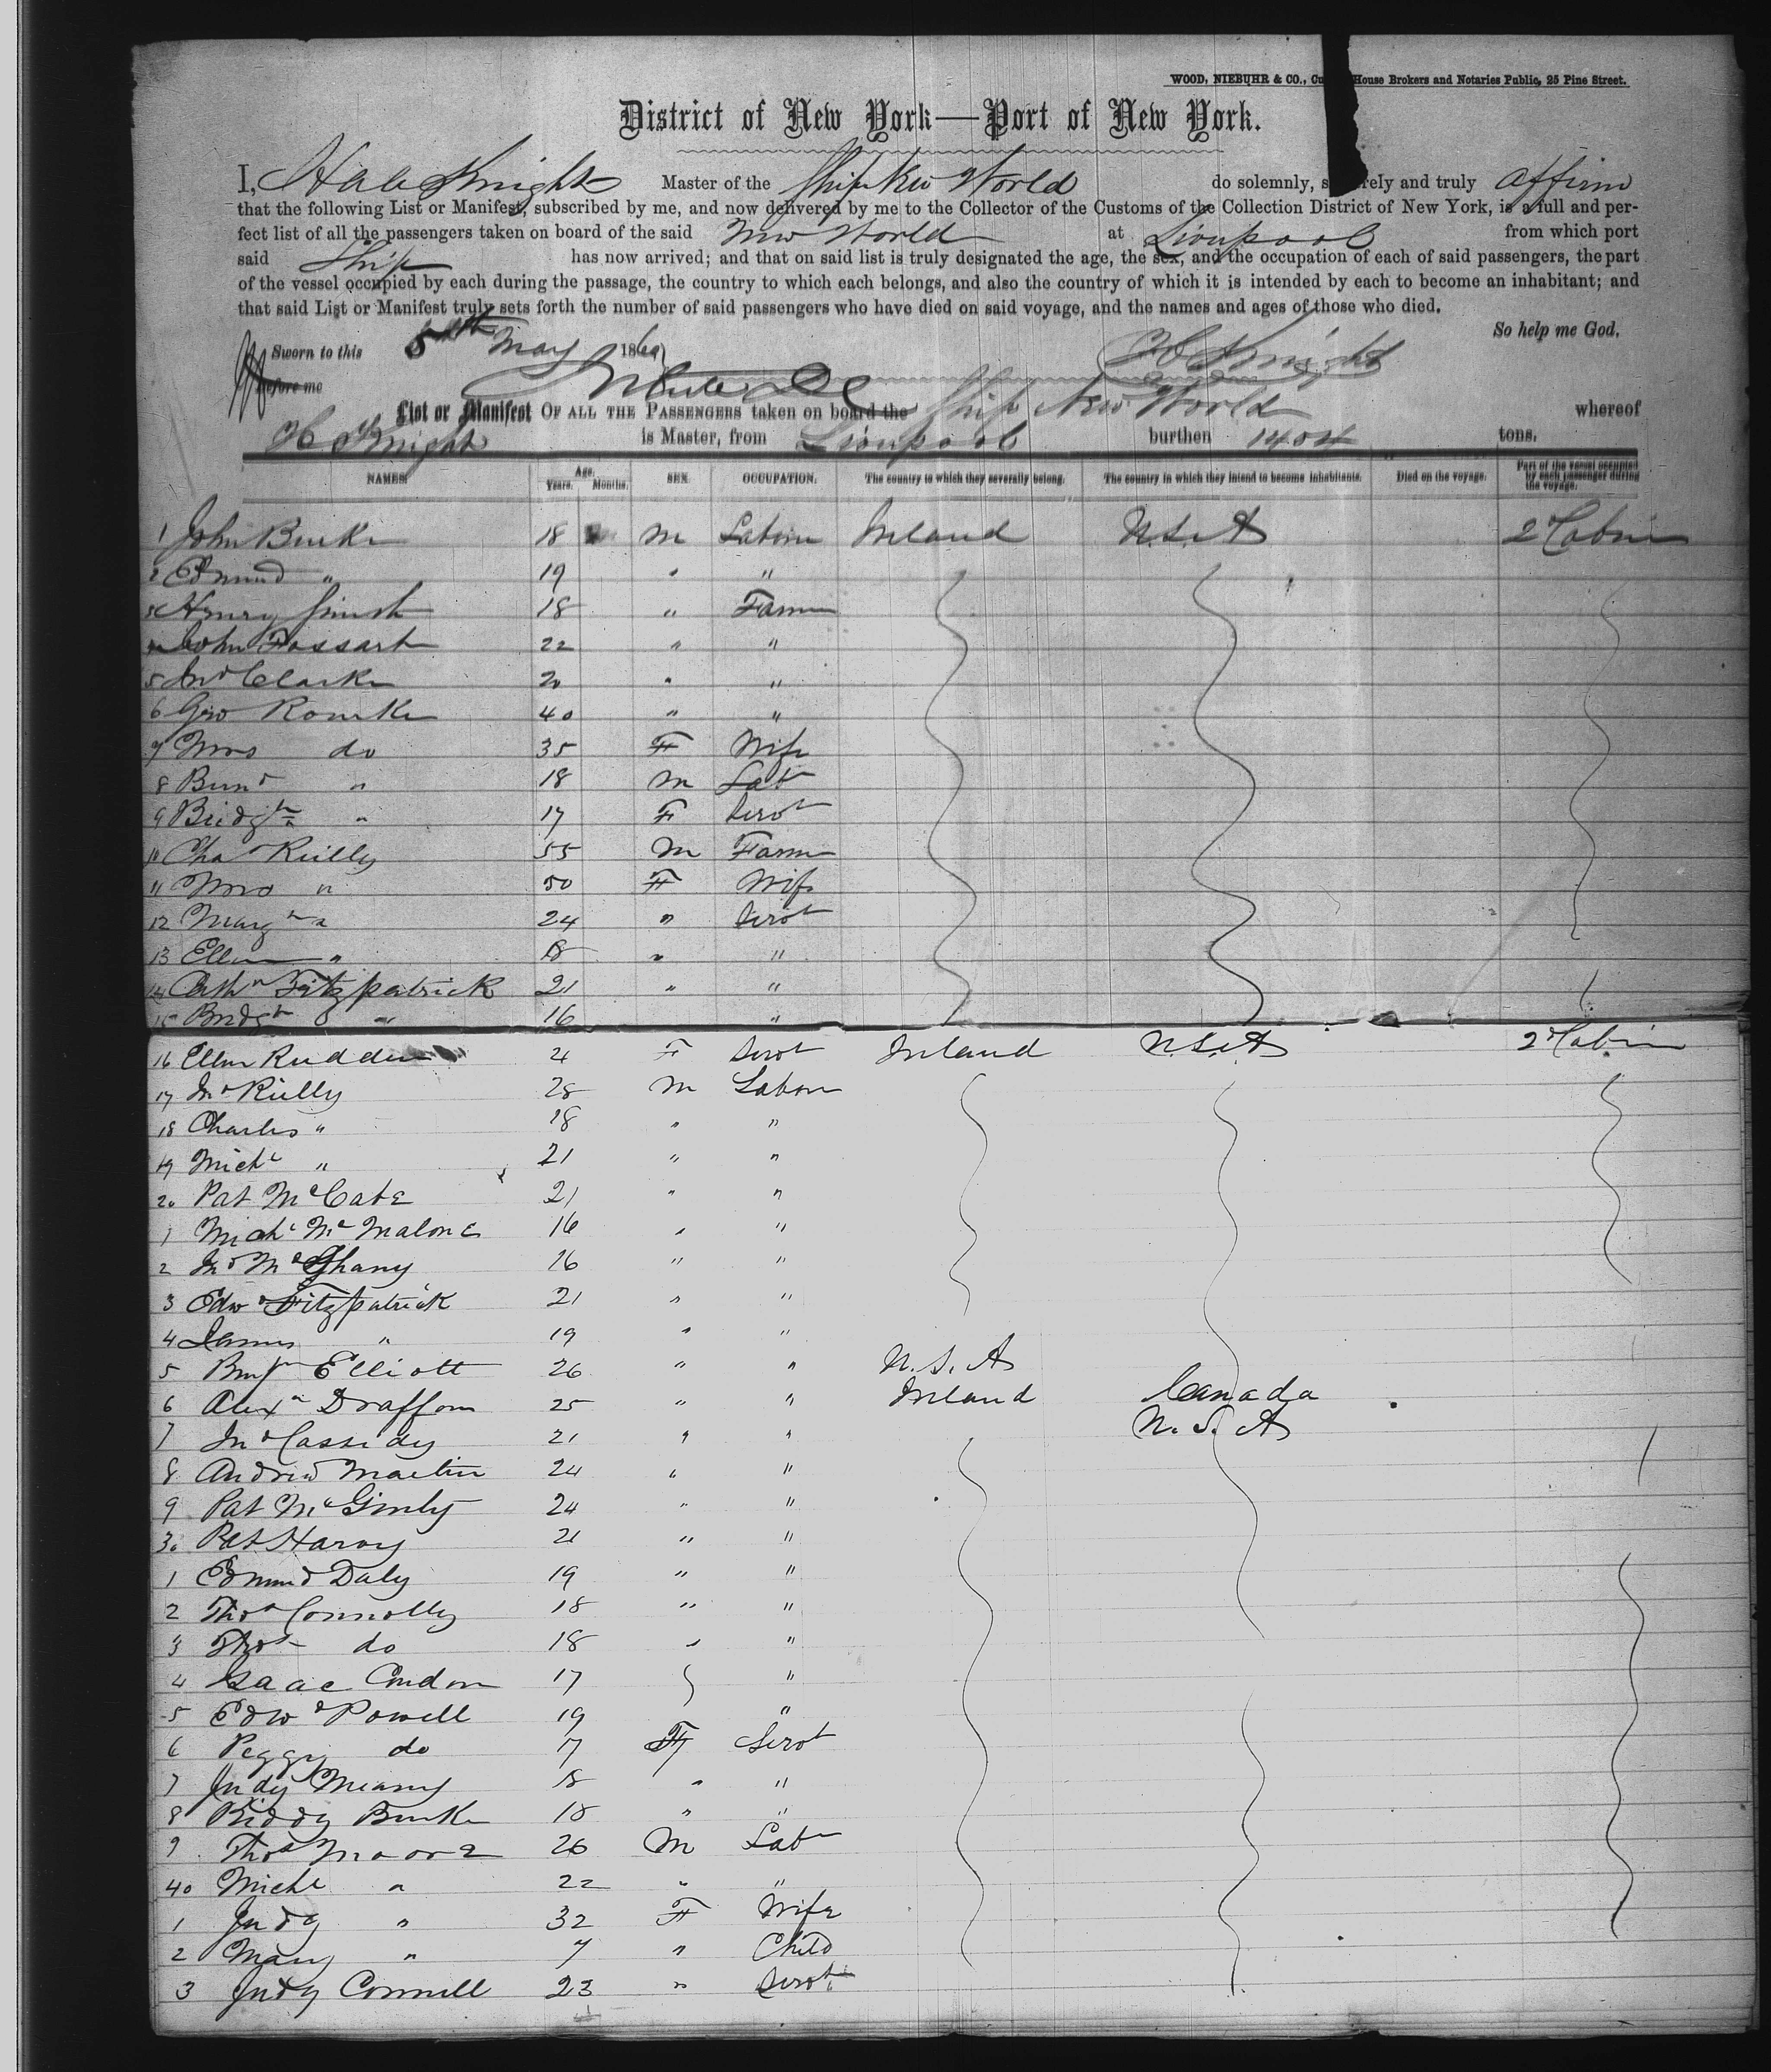 WOOD, NIEBUHR & CO., Cu House Brokers and Notaries Public, 25 Pine Street.
District of New York—Port of New York.
I, Knight Master of the Ship New World do solemnly, s rely and truly affirm
that the following List or Manifest, subscribed by me, and now delivered by me to the Collector of the Customs of the Collection District of New York, is a full and per-
fect list of all the passengers taken on board of the said New World at Liverpool from which port
said Ship has now arrived; and that on said list is truly designated the age, the sex, and the occupation of each of said passengers, the part
of the vessel occupied by each during the passage, the country to which each belongs, and also the country of which it is intended by each to become an inhabitant; and
that said List or Manifest truly sets forth the number of said passengers who have died on said voyage, and the names and ages of those who died.
So help me God.
Sworn to this 5th May 1869 H Knight
before me
List or Manifest OF ALL THE PASSENGERS taken on board the Ship New World whereof
H Knight is Master, from Liverpool burthen 1404 tons.
NAMES Age. Years. Months. SEX. OCCUPATION. The country to which they severally belong. The country in which they intend to become inhabitants. Died on the voyage. Part of the vessel occupied by each passenger during the voyage.
1 John Burke 18 M Labour Ireland U.S.A 2d Cabin
2 Edmund " 19 " "
3 Henry 18 " Farmer
4 John Fossart 22 " "
5 Jno Clarke 20 " "
6 Geo Rourke 40 " "
7 Mrs do 35 F Wife
8 Bernd " 18 M Labr
9 Bridgt " 17 F Servt
10 Chas Reilly 55 M Farmer
11 Mrs " 50 F Wife
12 Margt " 24 " Servt
13 Ellen " 18 " "
14 Cathn Fitzpatrick 21 " "
15 Bridgt " 16 "
16 Ellen Rudden 21 F Servt Ireland U.S.A 2d Cabin
17 Jno Reilly 28 M Labour
18 Charles " 18 " "
19 Michl " 21 " "
20 Pat McCabe 21 " "
1 Michl Mc Malone 16 " "
2 Jno 16 " "
3 Edwd Fitzpatrick 21 " "
4 James " 19 " "
5 Benjn Elliott 26 " " U.S.A
6 Alexr Draffom 25 " " Ireland Canada
7 Jno Cassidy 21 " " U.S.A
8 Andrew Martin 24 " "
9 Pat McGinly 24 " "
30 Pat Harvy 21 " "
1 Edmund Daly 19 " "
2 Thos Connolly 18 " "
3 Thos do 18 " "
4 Isaac Condon 17 "
5 Edwd Powell 19 "
6 Peggy do 17 F Servt
7 Judy Meany 18 " "
8 Biddy Burke 18 " "
9 Thos Moore 26 M Labr
40 Michl " 22 " "
1 Judy " 32 F Wife
2 Mary " 7 " Child
3 Judy Connell 23 " Servt